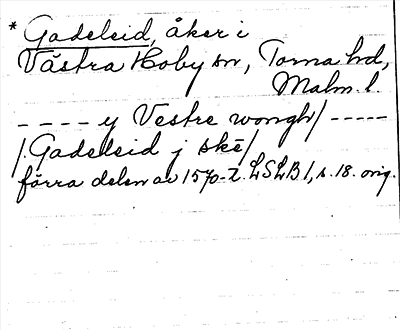 * Gadeleid, åker i
Västra Hoby sn, Torna hd,
Malm. l.
---- y Vestre wongh/ -----
/. Gadeleid j skē/
förra delen av 1570-t. LSLB 1, s. 18. orig.